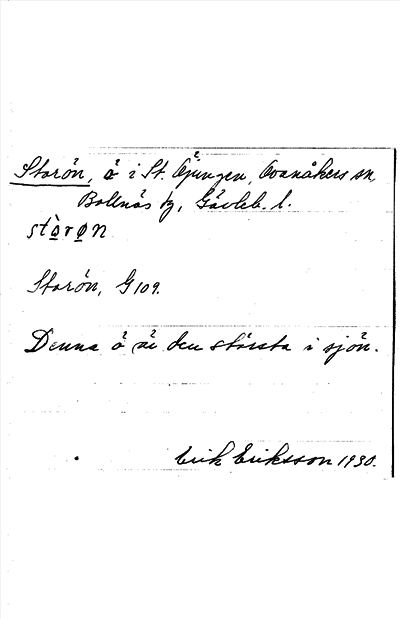 Storön, ö i St. Öjungen, Ovanåkers sn,
Bollnäs tg, Gävleb. l.
stòrøn
Storön, G 109.
Denna ö är den största i sjön.
Erik Eriksson 1930.